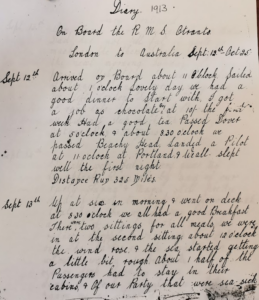 Diary 1913.
On Board the R M S Otranto
London to Australia Sept. 12th Oct. 25
Sept 12th Arrived on Board about 11 oclock Sailed
about 1 oclock Lovely day we had a
good dinner to Start with, & got
a job no chocolate at 10/- the
week Had a good tea Passed Dover
at 5 oclock & about 8.30 oclock we
passed Beachy Head, Landed a Pilot
at 11 oclock at Portland. & all slept
well the first night
Distance Run 323 Miles.
Sept 13th Up at six in morning & went on deck
at 8.30 oclock we all had a good Breakfast
There two sittings for all meals, we were
in at the second sitting about 10 oclock
the wind rose & the sea started getting
a little bit, rough about 1 half of the
Passengers had to stay in their
cabins & Of our Party that were sea sick